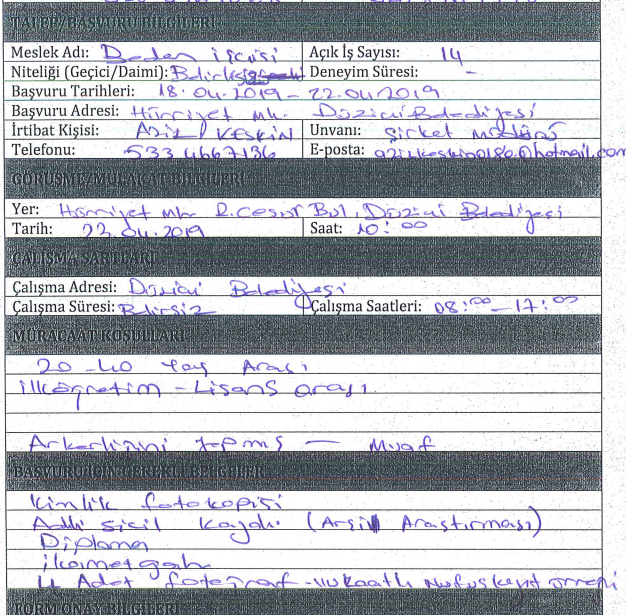 TALEP/BAŞVURU BİLGİLERİ
Meslek Adı: Beden işçisi Açık İş Sayısı: 14
Niteliği (Geçici/Daimi): Deneyim Süresi: -
Başvuru Tarihleri: 18.04.2019 - 22.04.2019
Başvuru Adresi: Hürriyet mh. Düziçi Belediyesi
İrtibat Kişisi: Aziz KESKİN Unvanı: Şirket müdürü
Telefonu: 533 4667136 E-posta:
GÖRÜŞME/MÜLAKAT BİLGİLERİ
Yer: Hürriyet mh. R.Cesur Bul. Düziçi Belediyesi
Tarih: 23.04.2019 Saat: 10:00
ÇALIŞMA ŞARTLARI
Çalışma Adresi: Düziçi Belediyesi
Çalışma Süresi: Belirsiz Çalışma Saatleri: 08:00 - 17:00
MÜRACAAT KOŞULLARI
20 - 40 Yaş Arası
ilköğretim - Lisans arası
Askerliğini yapmış — Muaf
BAŞVURU İÇİN GEREKLİ BELGELER
Kimlik fotokopisi
Adli sicil kaydı (Arşiv Araştırması)
Diploma
ikametgah
4 Adet fotoğraf - Vukuatlı Nüfus kayıt örneği
FORM ONAY BİLGİLERİ